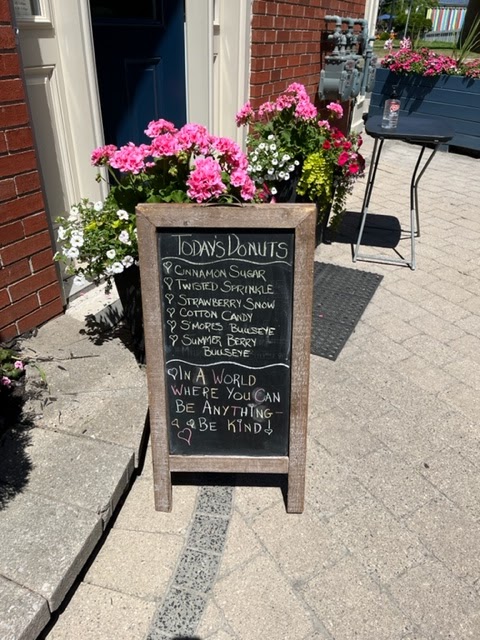 TODAY'S DONUTS
CINNAMON SUGAR
TWISTED SPRINKLE
STRAWBERRY SNOW
COTTON CANDY
S'MORES BULLSEYE
SUMMER BERRY
BULLSEYE
IN A WORLD
WHERE YOU CAN
BE ANYTHING-
BE KIND!